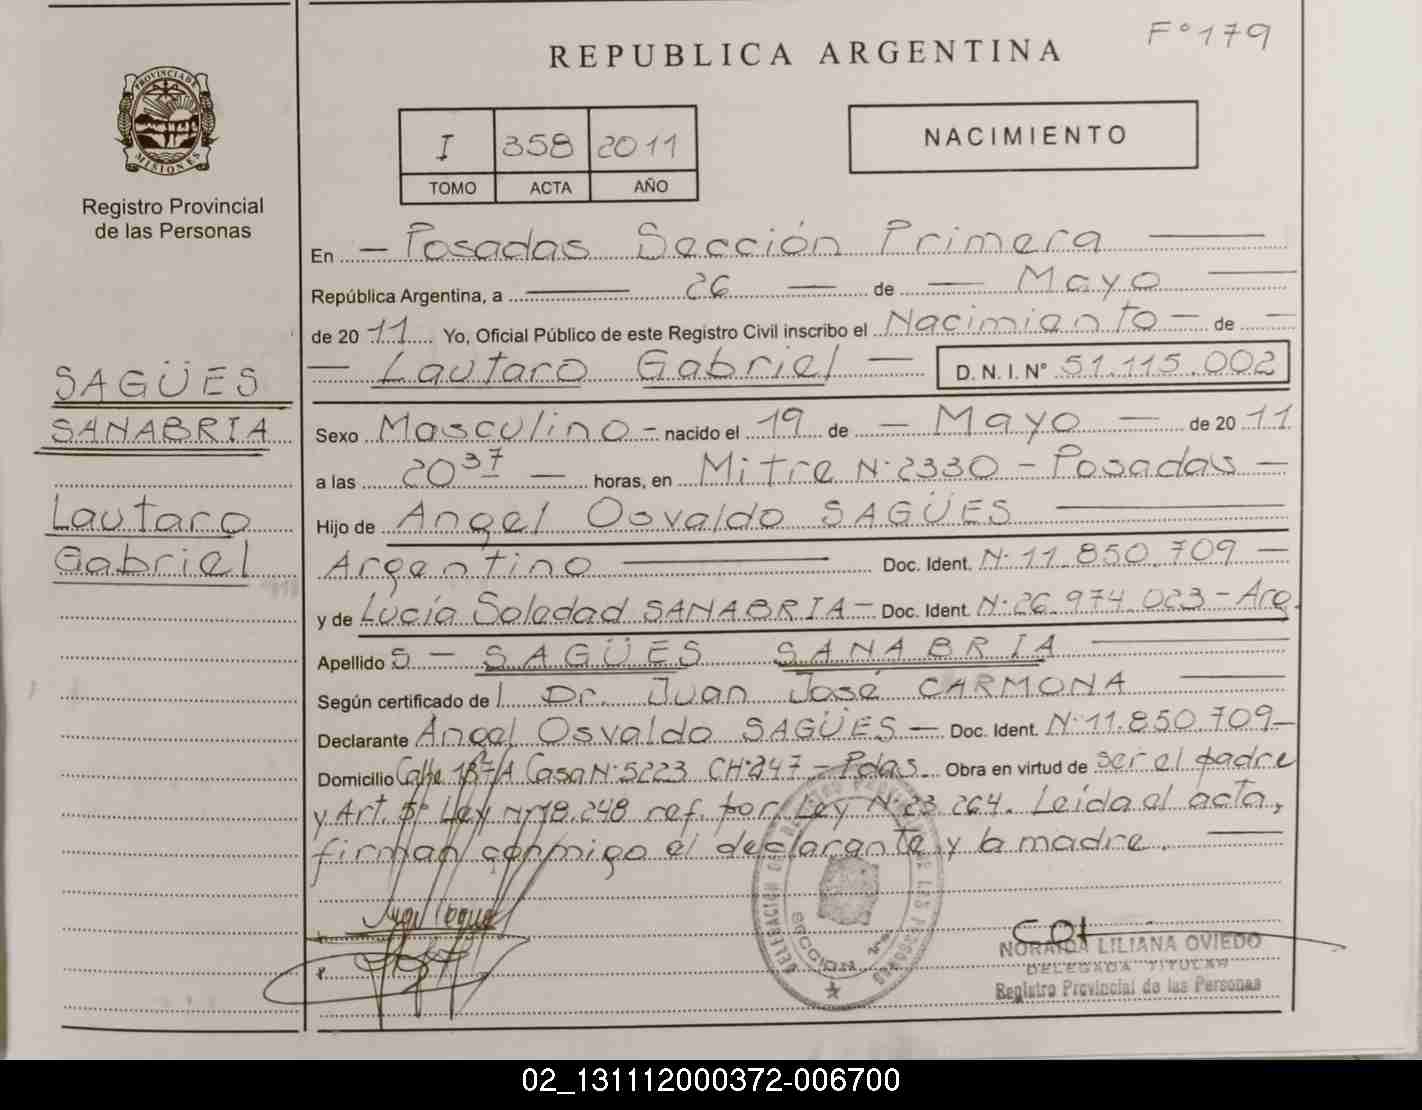 F° 179
REPUBLICA ARGENTINA
PROVINCIA DE
MISIONES
Registro Provincial
de las Personas
I 358 2011
TOMO ACTA AÑO
NACIMIENTO
En - Posadas Sección Primera
República Argentina, a 26 de Mayo
de 2011 Yo, Oficial Público de este Registro Civil inscribo el Nacimiento - de -
- Lautaro Gabriel - D. N. I. N° 51.115.002
SAGÜES
SANABRIA
Lautaro
Gabriel
Sexo Masculino - nacido el 19 de - Mayo - de 2011
a las 20 37 - horas, en Mitre N° 2330 - Posadas -
Hijo de Angel Osvaldo SAGÜES
Argentino Doc. Ident. N° 11.850.709 -
y de Lucía Soledad SANABRIA - Doc. Ident. N° 26.974.023 - Arg.
Apellido S - SAGÜES SANABRIA
Según certificado del Dr. Juan José CARMONA
Declarante Angel Osvaldo SAGÜES - Doc. Ident. N° 11.850.709 -
Domicilio Calle 187/A Casa N° 5223 CH° 247 - Pdas. Obra en virtud de ser el padre
y Art. 5° Ley N° 18.248 ref. por Ley N° 23.264. Leída el acta,
firman conmigo el declarante y la madre.
DELEGACION DEL REGISTRO PROVINCIAL DE LAS PERSONAS
SECCION 1ra
NORAIDA LILIANA OVIEDO
DELEGADA TITULAR
Registro Provincial de las Personas
02_131112000372-006700